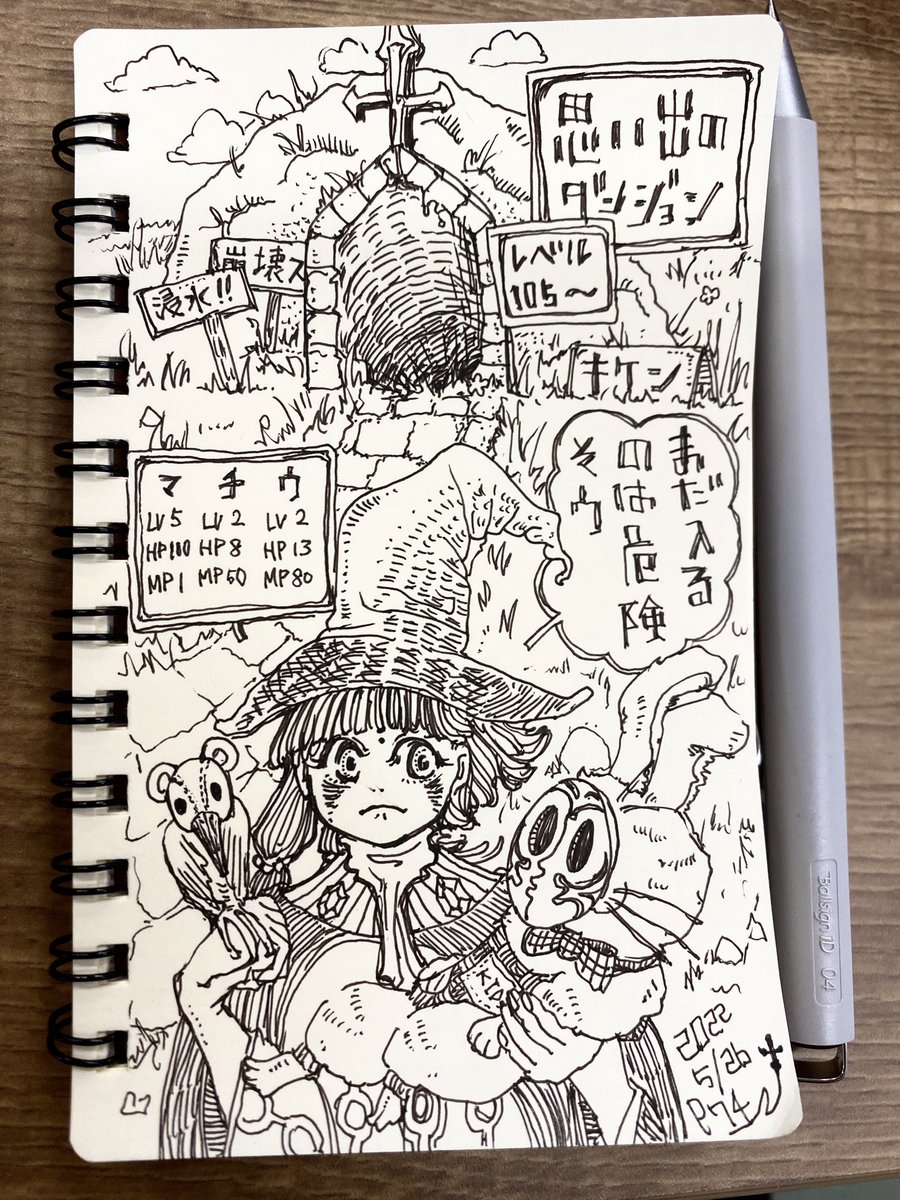 思い出の
ダンジョン
レベル
105〜
崩壊ス
浸水!!
キケン
まだ入る
のは危険
そウ
マ チ ウ
LV5 LV2 LV2
HP110 HP8 HP13
MP1 MP50 MP80
2022
5/26
P74
Ballsign iD 04